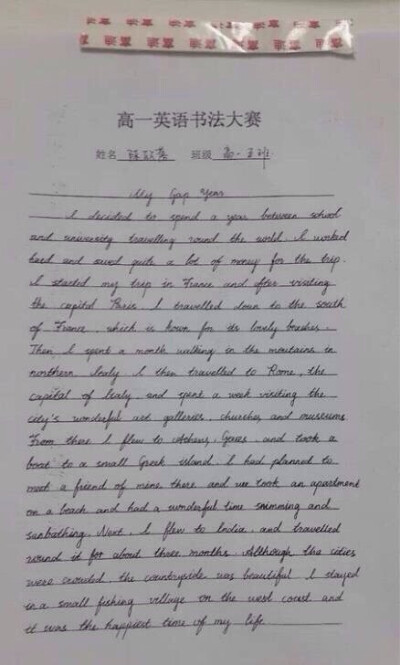 高一英语书法大赛
姓名 班级 高一.五班
My Gap Year
I decided to spend a year between school
and university travelling round the world. I worked
hard and saved quite a lot of money for the trip.
I started my trip in France and after visiting
the capital Paris. I travelled down to the south
of France, which is kown for its lovely beaches.
Then, I spent a month walking in the moutains in
northern Italy I then travelled to Rome, the
capital of Italy, and spent a week visiting the
city's wonderful art galleries, churches, and museums
From there I flew to Athens, and took a
boat to a small Greek island. I had planned to
meet a friend of mine there and we took an apartment
on a beach and had a wonderful time swimming and
sunbathing. Next, I flew to India, and travelled
round it for about three months. Although the cities
were crowded the countryside was beautiful I stayed
in a small fishing village on the west coast and
it was the happiest time of my life.